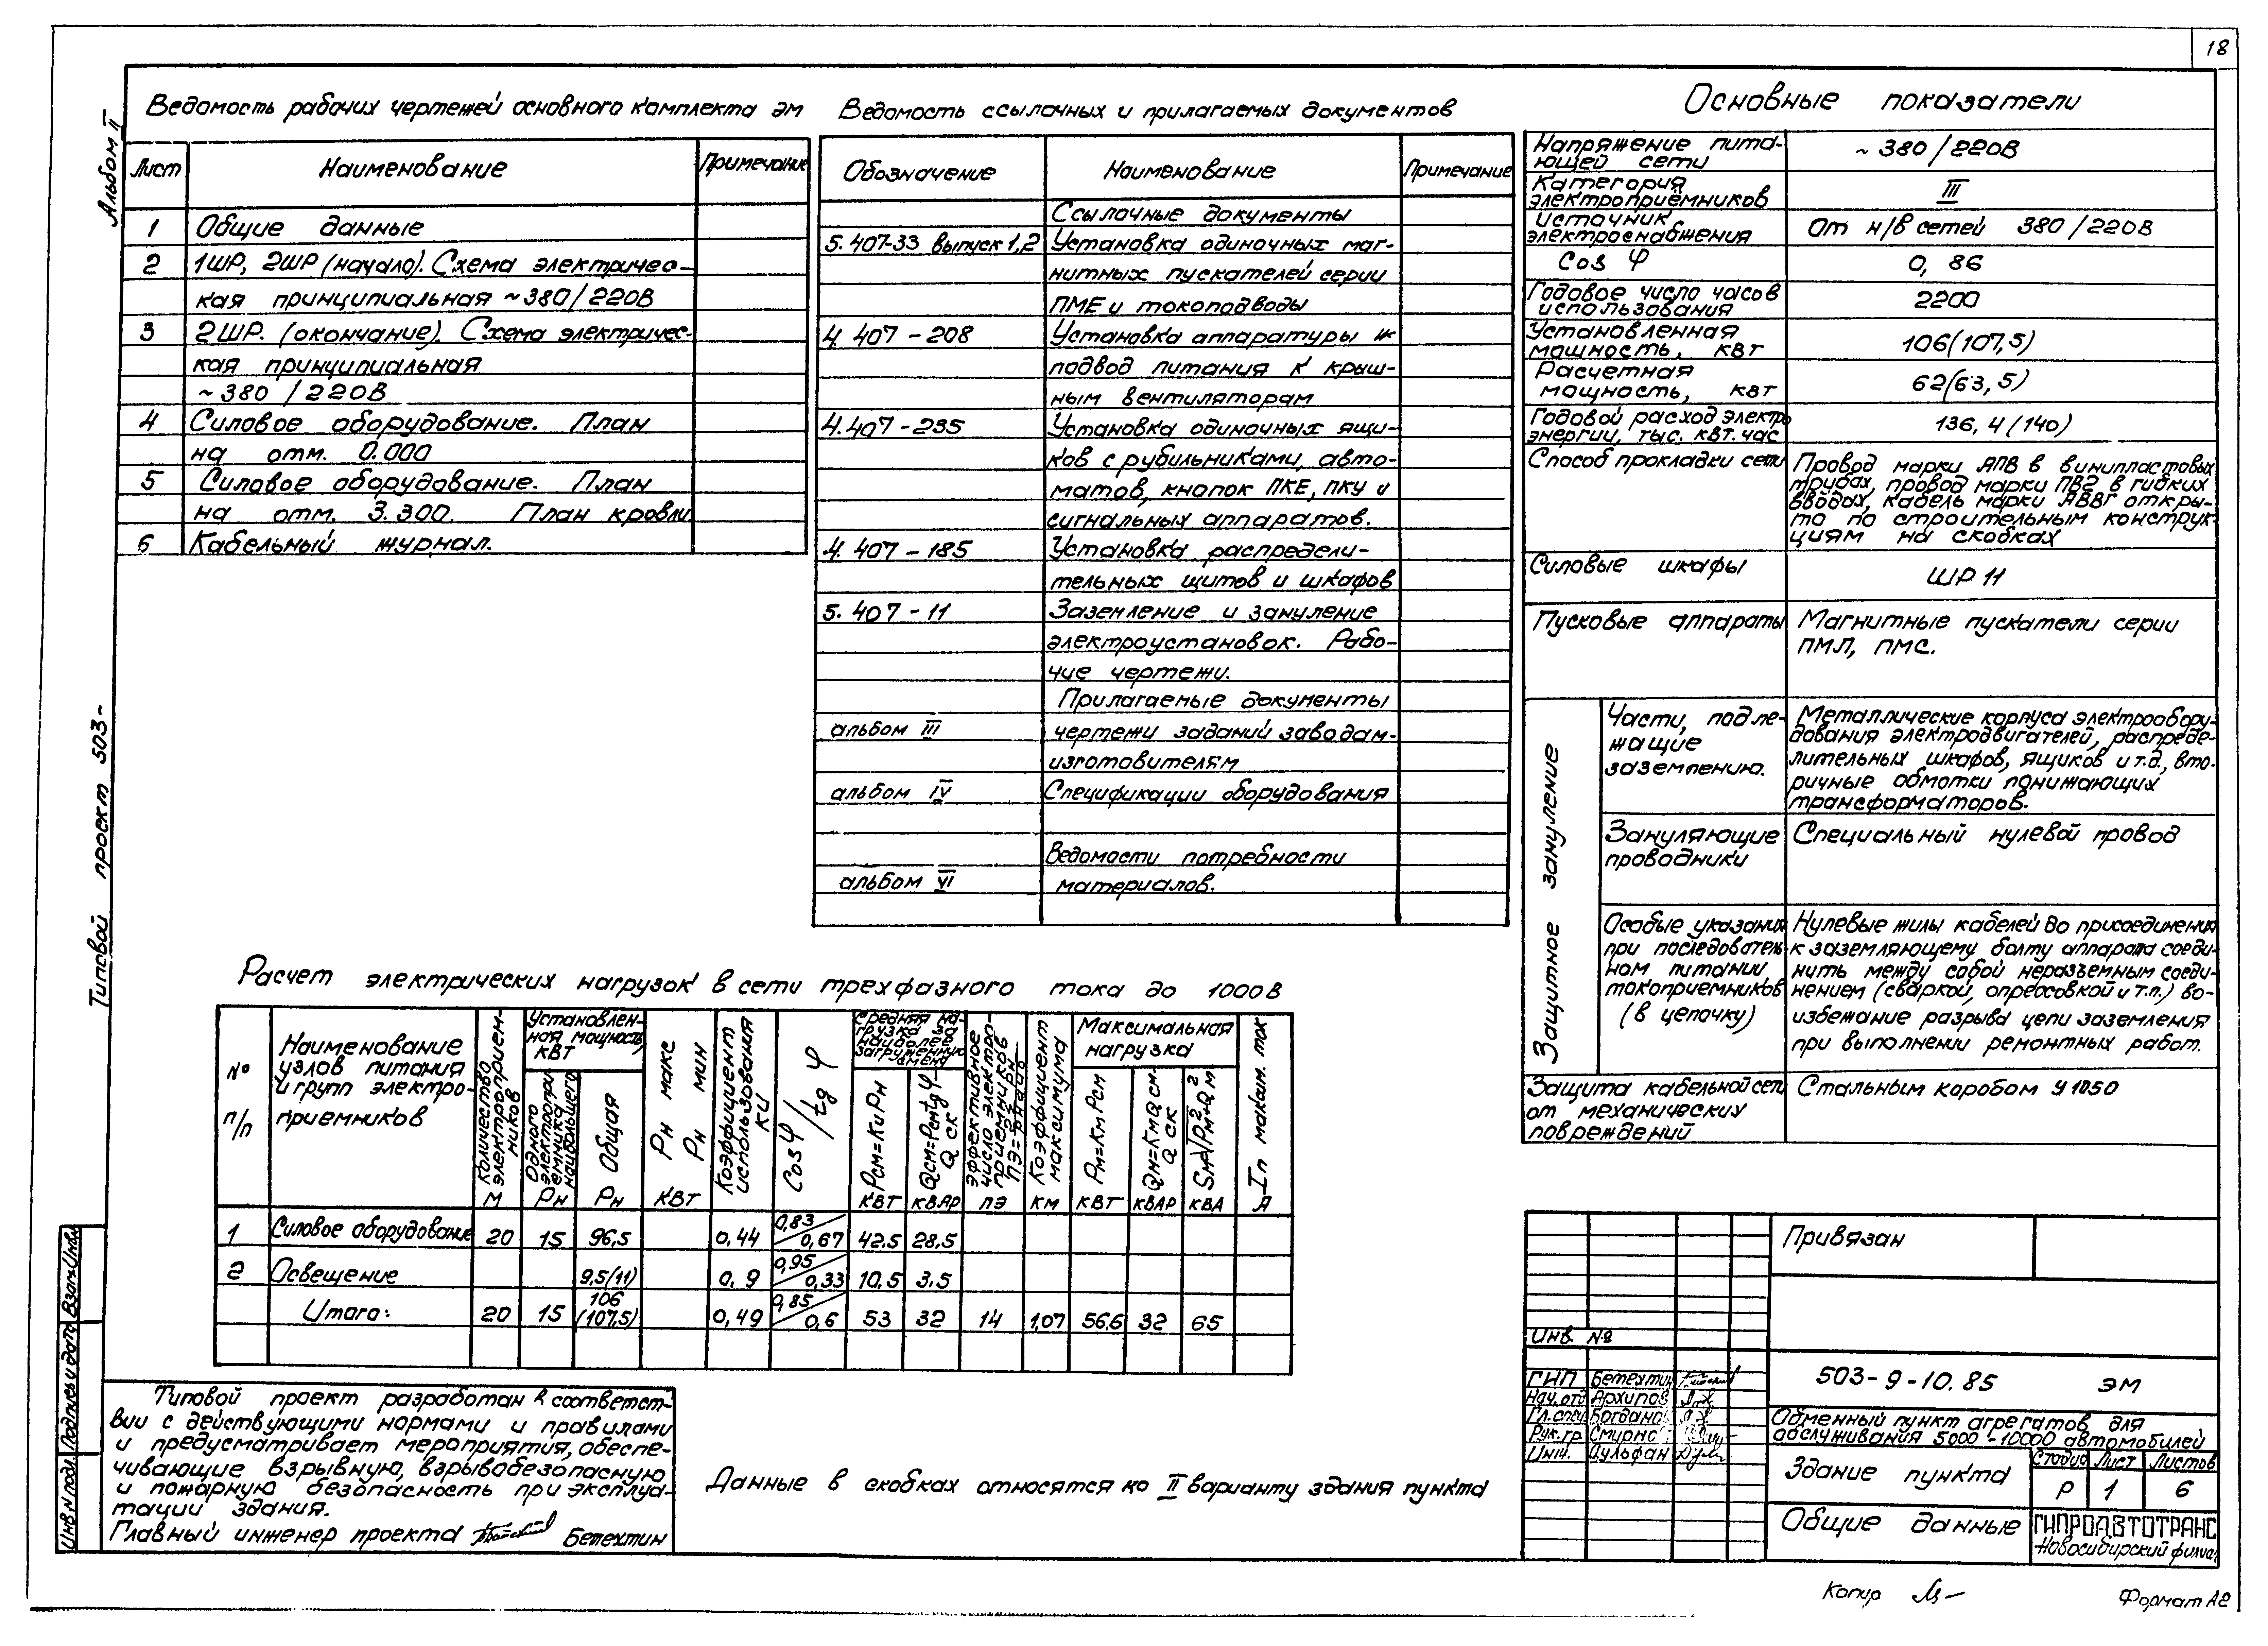 18
Альбом II
Типовой проект 503-
Ведомость рабочих чертежей основного комплекта эм
Лист Наименование Примечание
1 Общие данные
2 1ШР, 2ШР (начало). Схема электричес-
кая принципиальная ~380/220В
3 2ШР. (окончание). Схема электричес-
кая принципиальная
~380/220В
4 Силовое оборудование. План
на отм. 0.000
5 Силовое оборудование. План
на отм. 3.300. План кровли
6 Кабельный журнал.
Ведомость ссылочных и прилагаемых документов
Обозначение Наименование Примечание
Ссылочные документы
5.407-33 выпуск 1,2 Установка одиночных маг-
нитных пускателей серии
ПМЕ и токоподводы
4.407-208 Установка аппаратуры и
подвод питания к крыш-
ным вентиляторам
4.407-235 Установка одиночных ящи-
ков с рубильниками, авто-
матов, кнопок ПКЕ, ПКУ и
сигнальных аппаратов.
4.407-185 Установка распредели-
тельных щитов и шкафов
5.407-11 Заземление и зануление
электроустановок. Рабо-
чие чертежи.
Прилагаемые документы
альбом III чертежи заданий заводам-
изготовителям
альбом IV Спецификации оборудования
Ведомости потребности
альбом VI материалов.
Основные показатели
Напряжение пита-
ющей сети ~380/220В
Категория
электроприёмников III
Источник
электроснабжения От н/в сетей 380/220В
Cos φ 0,86
Годовое число часов
использования 2200
Установленная
мощность, квт 106(107,5)
Расчетная
мощность, квт 62(63,5)
Годовой расход электро
энергии, тыс. квт.час 136,4(140)
Способ прокладки сети Провод марки АПВ в винипластовых
трубах, провод марки ПВ2 в гибких
вводах, кабель марки АВВГ откры-
то по строительным конструк-
циям на скобках
Силовые шкафы ШР 11
Пусковые аппараты Магнитные пускатели серии
ПМЛ, ПМС.
Защитное зануление
Части, подле- Металлические корпуса электрообору-
жащие дования электродвигателей, распреде-
заземлению. лительных шкафов, ящиков и т.д., вто-
ричные обмотки понижающих
трансформаторов.
Зануляющие Специальный нулевой провод
проводники
Особые указания Нулевые жилы кабелей до присоединения
при последователь- к заземляющему болту аппарата соеди-
ном питании нить между собой неразъемным соеди-
токоприемников нением (сваркой, опрессовкой и т.п.) во-
(в цепочку) избежание разрыва цепи заземления
при выполнении ремонтных работ.
Защита кабельной сети Стальным коробом У1050
от механических
повреждений
Расчет электрических нагрузок в сети трехфазного тока до 1000В
№ п/п
Наименование
узлов питания
и групп электро-
приемников
Количество электроприем-
ников
М
Установлен-
ная мощность
КВТ
Одного электропри-
емника наибольшего
Рн
Общая
Рн
Рн макс
Рн мин
КВТ
Коэффициент
использования
КИ
Cosφ/tgφ
Средняя на-
грузка за
наиболее
загруженную
смену
Рсм=КиРн
КВТ
Qсм=Рсмtgφ
Q ск
КВАР
Эффективное
число электро-
приемников
ПЭ
Коэффициент
максимума
КМ
Максимальная
нагрузка
Рм=КмРсм
КВТ
Qм=КмQсм-
Q ск
КВАР
Sм=√Рм²+Qм²
КВА
Iп максим. ток
А
1 Силовое оборудование 20 15 96,5 0,44 0,83/0,67 42.5 28.5
2 Освещение 9,5(11) 0,9 0,95/0,33 10,5 3.5
Итого: 20 15 106 (107,5) 0,49 0,85/0,6 53 32 14 1,07 56,6 32 65
Типовой проект разработан в соответст-
вии с действующими нормами и правилами
и предусматривает мероприятия, обеспе-
чивающие взрывную, взрывобезопасную
и пожарную безопасность при эксплуа-
тации здания.
Главный инженер проекта Бетехтин
Данные в скобках относятся ко II варианту здания пункта
Инв.№ подл. Подпись и дата Взам.инв.
Привязан
Инв. №
ГИП Бетехтин
Нач.отд Архипов
Гл.спец Богданов
Рук.гр. Смирно
Инж. Цульфан
503-9-10.85 ЭМ
Обменный пункт агрегатов для
обслуживания 5000-10000 автомобилей
Здание пункта
Стадия Лист Листов
Р 1 6
Общие данные
ГИПРОАВТОТРАНС
Новосибирский филиал
Копир
Формат А2